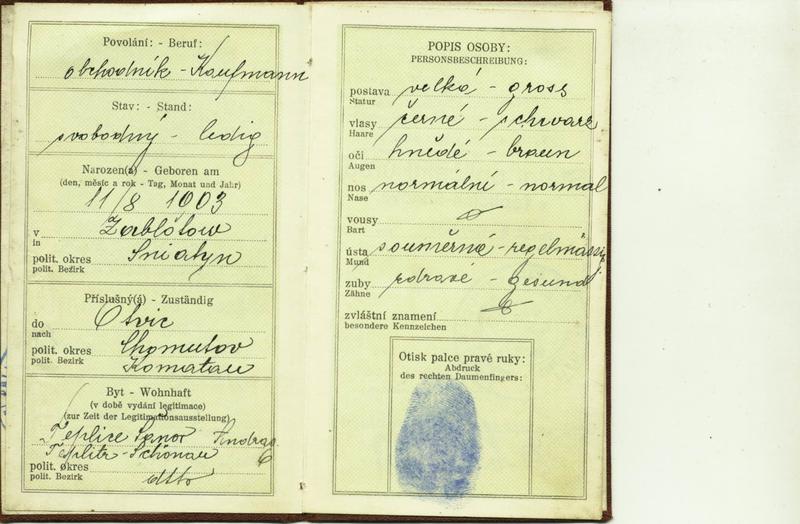 Povolání: - Beruf:
obchodník - Kaufmann
Stav: - Stand:
svobodný - ledig
Narozen(a) - Geboren am
(den, měsíc a rok - Tag, Monat und Jahr)
11/8 1903
v Zablotow
in
polit. okres Sniatyn
polit. Bezirk
Příslušný(á) - Zuständig
do Otvic
nach
polit. okres Chomutov
polit. Bezirk Komotau
Byt - Wohnhaft
(v době vydání legitimace)
(zur Zeit der Legitimationsausstellung)
Teplice Šanov
Teplitz-Schönau 6
polit. okres
polit. Bezirk dtto
POPIS OSOBY:
PERSONSBESCHREIBUNG:
postava velká - gross
Statur
vlasy černé - schwarz
Haare
oči hnědé - braun
Augen
nos normální - normal
Nase
vousy
Bart
ústa souměrná - regelmässig
Mund
zuby zdravé - gesund
Zähne
zvláštní znamení
besondere Kennzeichen
Otisk palce pravé ruky:
Abdruck
des rechten Daumenfingers: